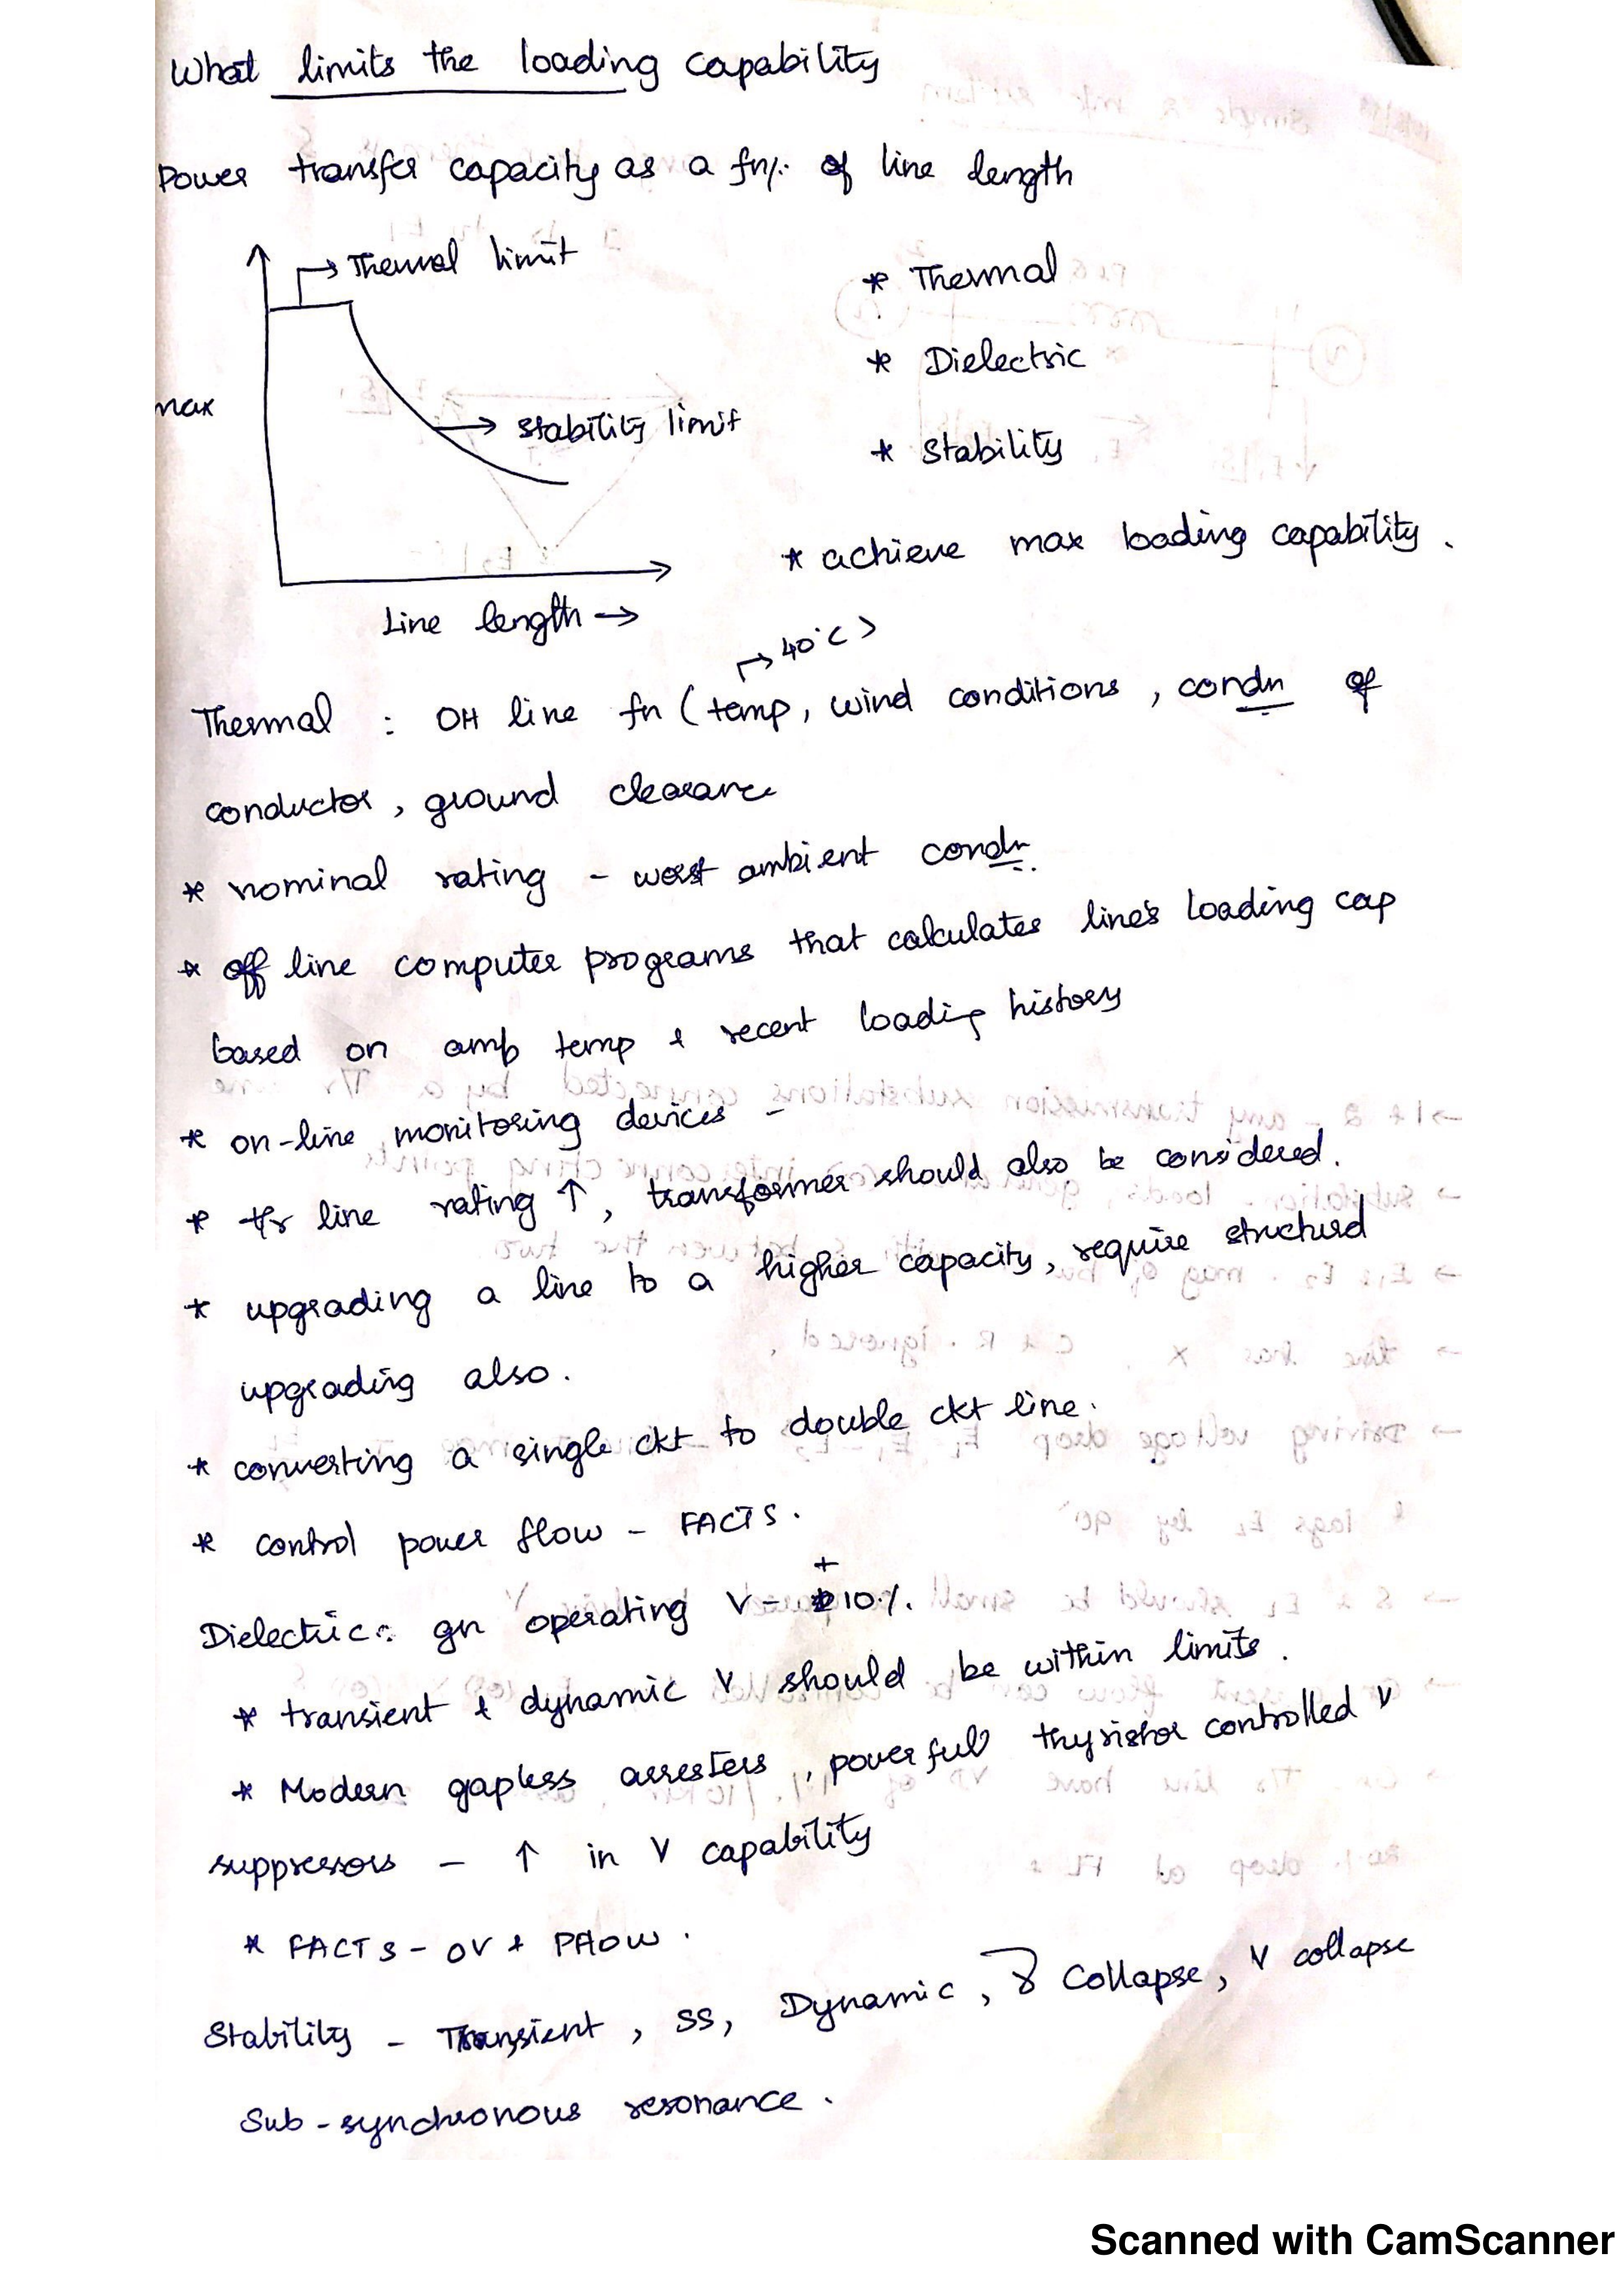 What limits the loading capability
Power transfer capacity as a fn/. of line length
→ Thermal limit
* Thermal
* Dielectric
max
→ stability limit
* Stability
* achieve max loading capability.
Line length →
→ 40°C >
Thermal : OH line fn (temp, wind conditions, condn of
conductor, ground clearance
* nominal rating - worst ambient condn.
* off line computer programs that calculates line's loading cap
based on amb temp & recent loading history
* on-line monitoring devices -
* t/r line rating ↑, transformer should also be considered.
* upgrading a line to a higher capacity, require structural
upgrading also.
* converting a single ckt to double ckt line.
* control power flow - FACTS.
+
Dielectric: gn operating V - 10%.
* transient & dynamic V should be within limits.
* Modern gapless arresters, powerful thyristor controlled V
suppressors - ↑ in V capability
* FACTS - OV &
Stability - Transient, SS, Dynamic, Collapse, V collapse
Sub-synchronous resonance.
Scanned with CamScanner